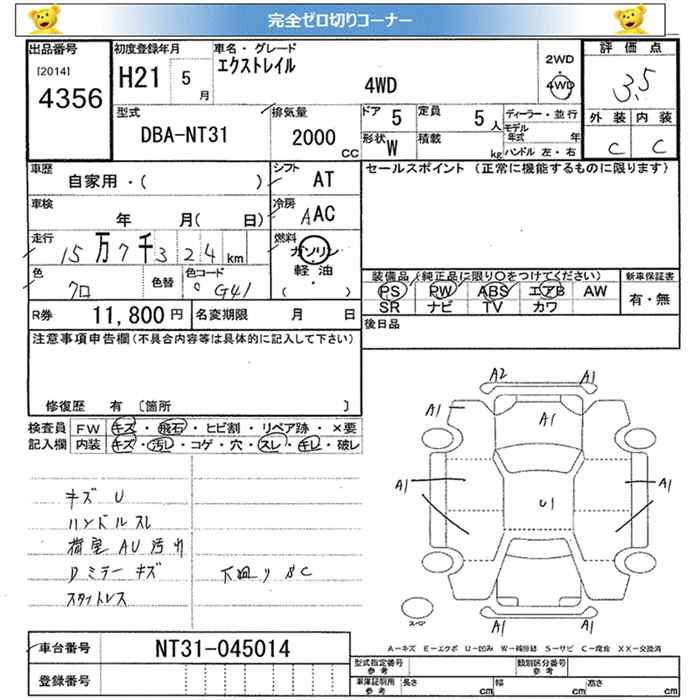 完全ゼロ切りコーナー
出品番号
[2014]
4356
初度登録年月
H21 5 月
車名・グレード
エクストレイル
4WD
2WD
4WD
評価点
3.5
外装 内装
C C
型式
DBA-NT31
排気量
2000 CC
ドア 5
定員 5 人
形状 W
積載 kg
ディーラー・並行
モデル年式 年
ハンドル 左・右
車歴
自家用・( )
シフト
AT
セールスポイント (正常に機能するものに限ります)
車検
年 月( 日)
冷房
AAC
走行
15万7千324km
燃料
ガソリン・軽油
( )
色
クロ
色替
色コード
G41
装備品(純正品に限り○をつけてください)
PS PW ABS エアB AW
SR ナビ TV カワ
新車保証書
有・無
R券 11,800円
名変期限 月 日
後日品
注意事項申告欄(不具合内容等は具体的に記入して下さい)
修復歴 有 〔箇所 〕
検査員記入欄
FW キズ・飛石・ヒビ割・リペア跡・×要
内装 キズ・汚レ・コゲ・穴・スレ・キレ・破レ
キズ U
ハンドルスレ
荷室 AU 汚リ
Dミラーキズ
スタットレス
下廻りサC
A2 A1
A1 A1
A1 A1
U1
A1 A1
スペア
A-キズ E-エクボ U-凹み W-補修跡 S-サビ C-腐食 XX-交換済
車台番号
NT31-045014
登録番号
型式指定番号
参考
類別区分番号
参考
車庫証明用
参考
長さ cm 幅 cm 高さ cm